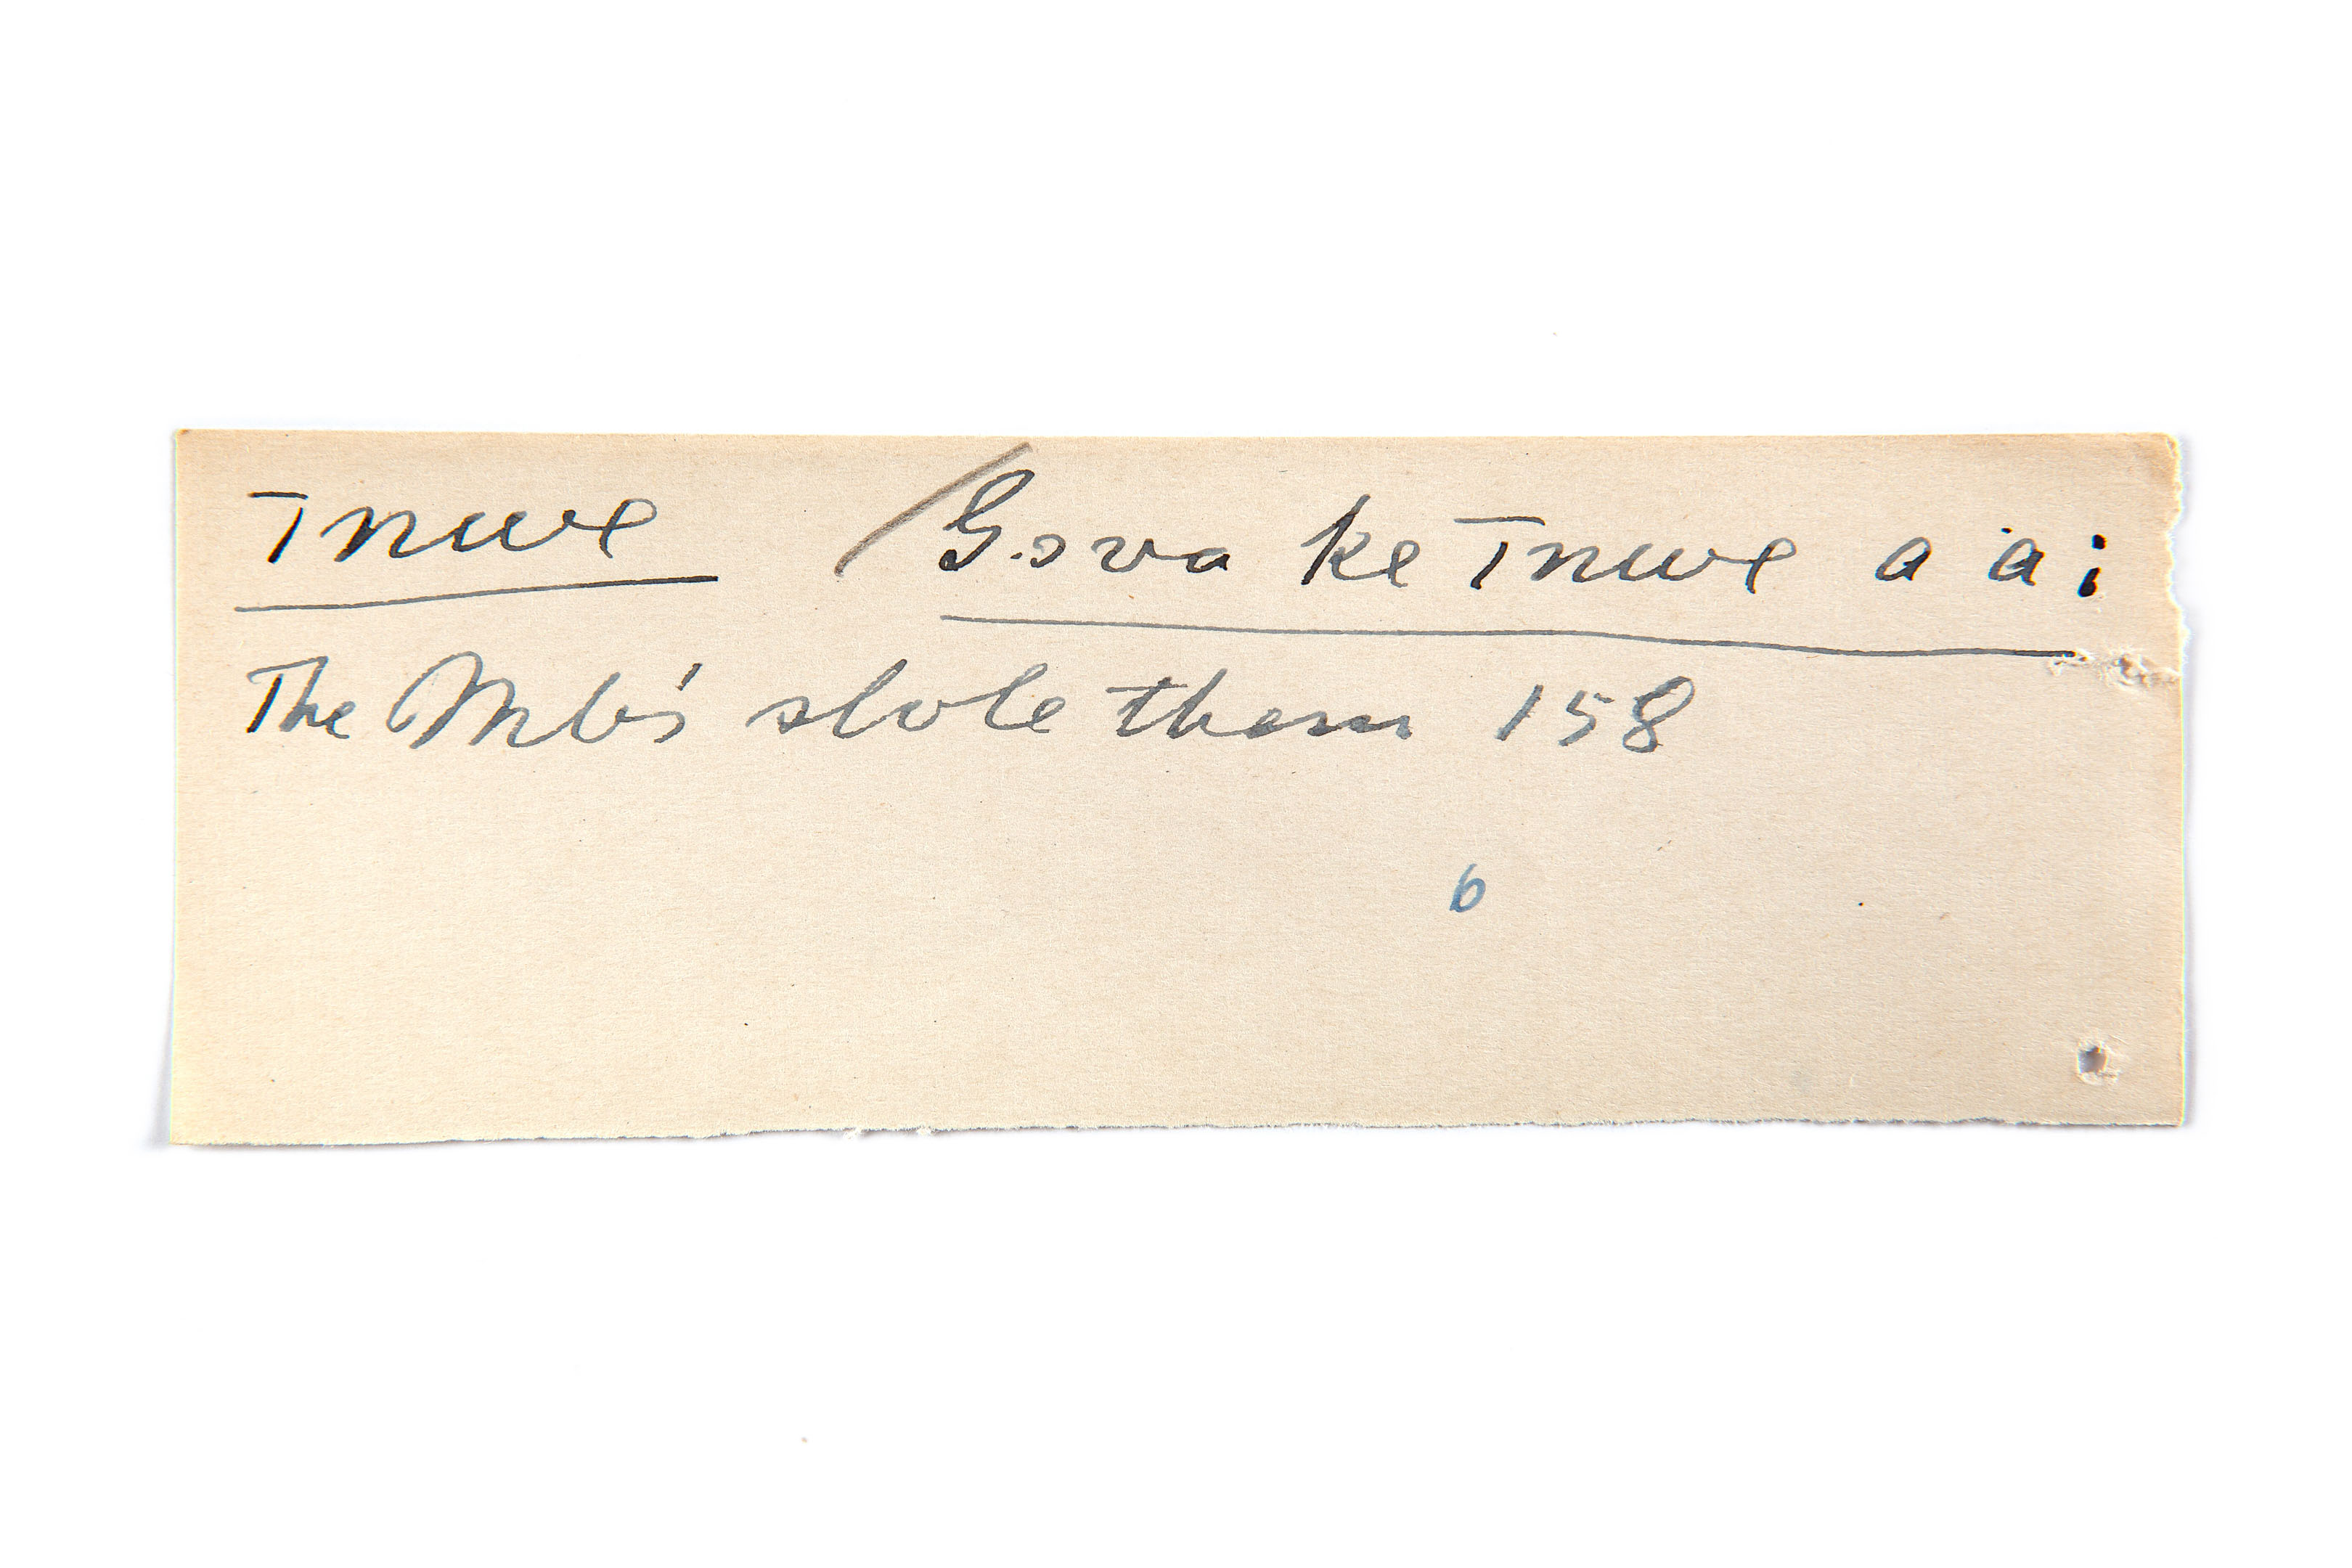 Tnwe / G.ova ke Tnwe a a;
The Mb's stole them 158
6